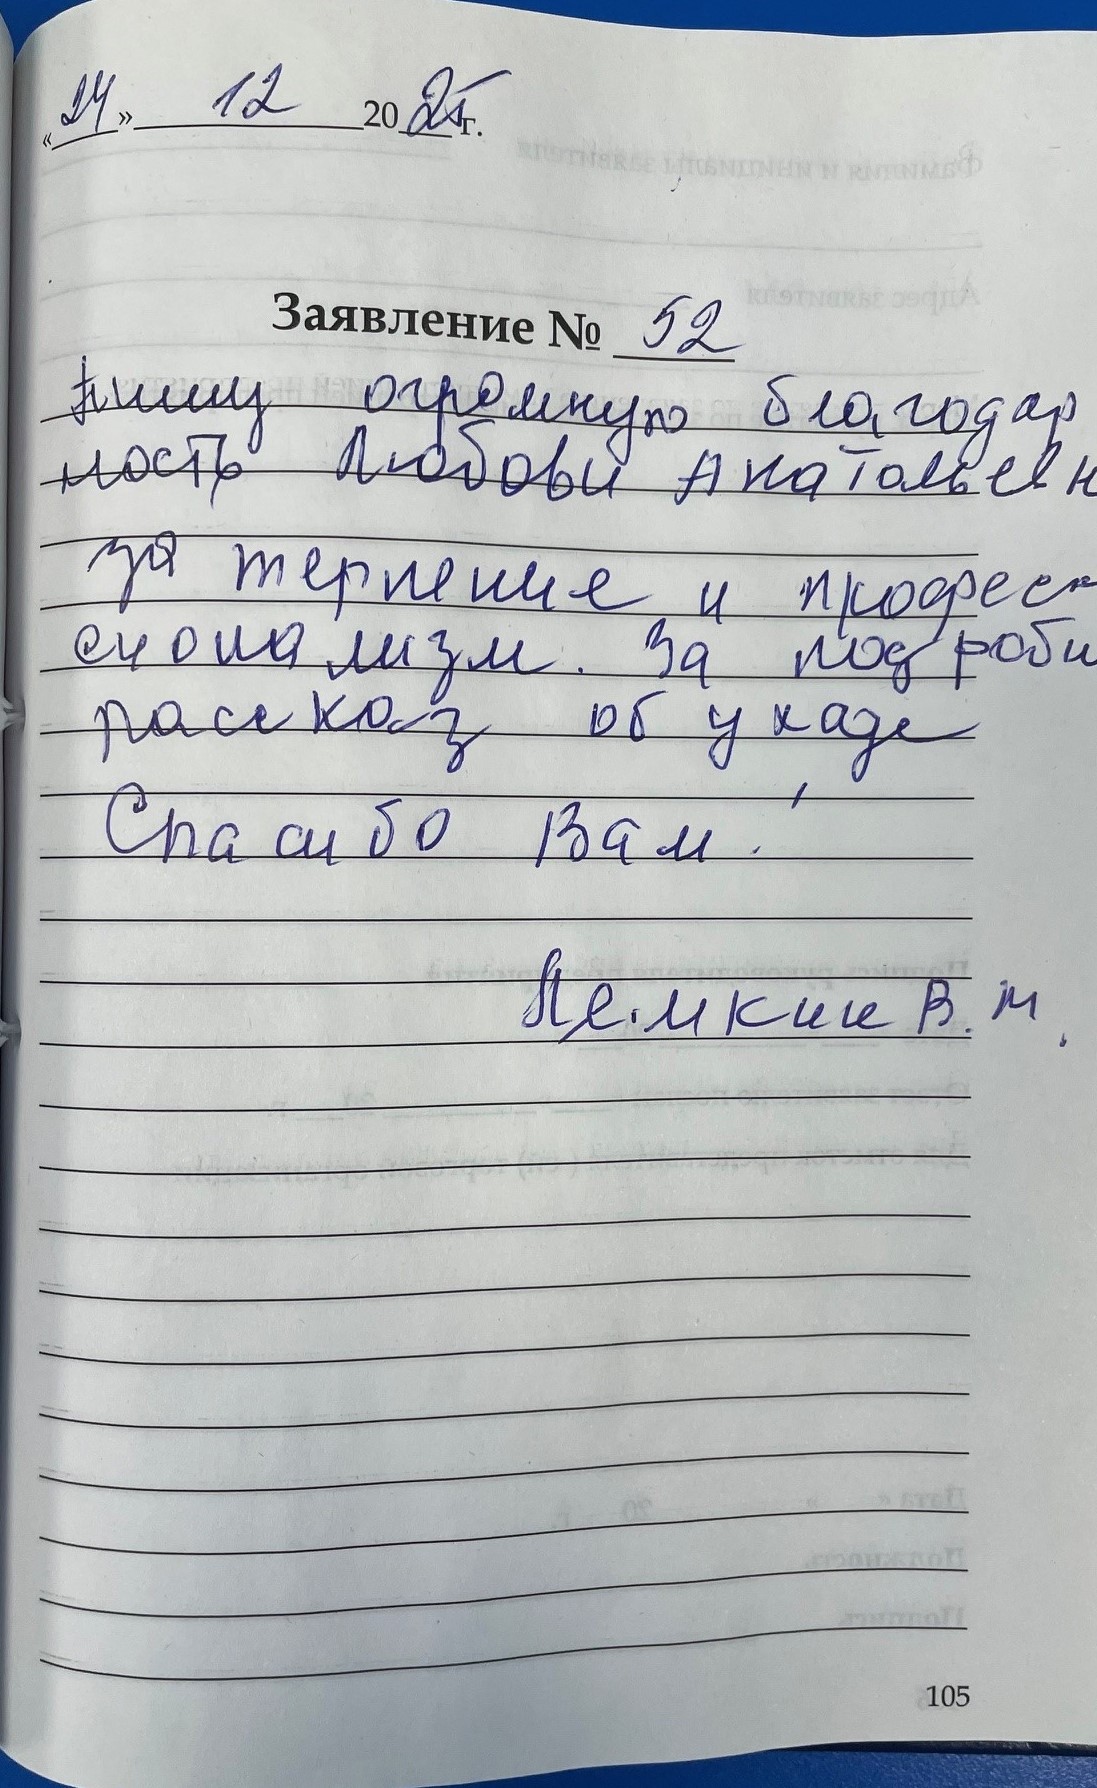 «24» 12 2025 г.
Заявление № 52
Пишу огромную благодар
ность Любови Анатольевн
за терпение и професс
сионализм. За подробн
рассказ об укаде
Спасибо Вам!
Лемкин В. М.
105